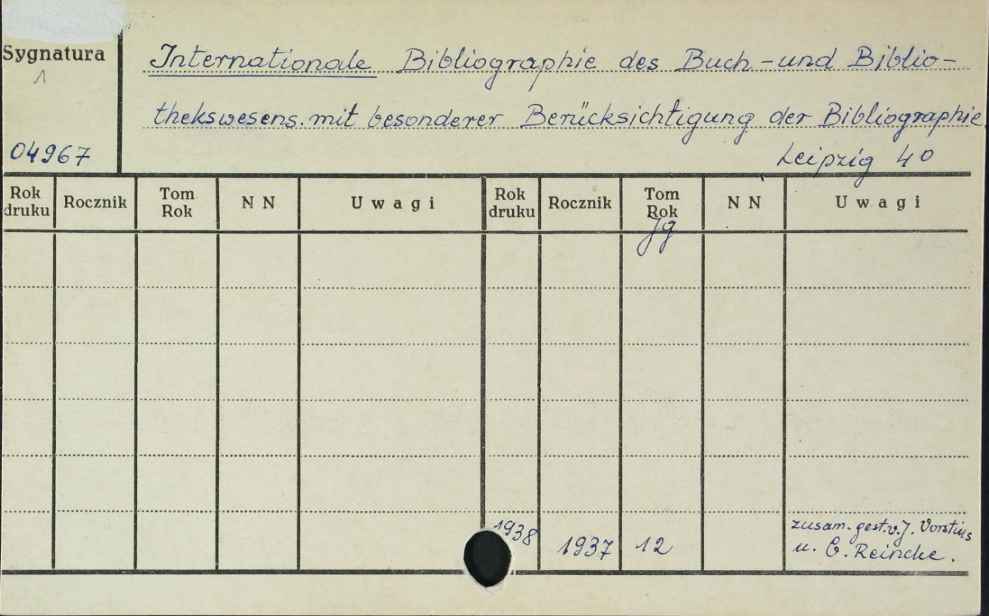 Sygnatura
1
04967
Internationale Bibliographie des Buch-und Biblio-
thekswesens. mit besonderer Berücksichtigung der Bibliographie
Leipzig 4 0
Rok druku Rocznik Tom Rok N N Uwagi Rok druku Rocznik Tom Rok N N Uwagi
Jg
1938 1937 12 zusam. gest. v. J. Vorstius
u. E. Reincke.